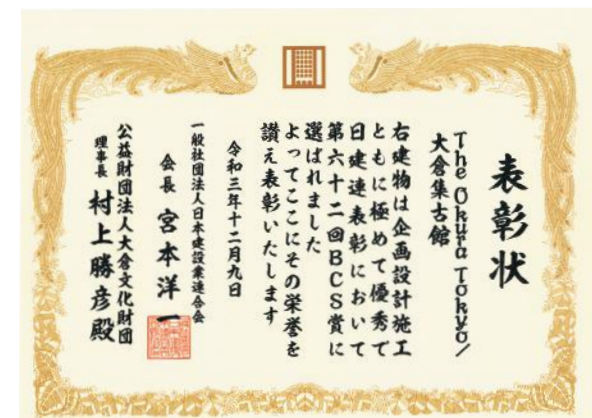 表彰状
The Okura Tokyo/
大倉集古館
右建物は企画設計施工
ともに極めて優秀で
日建連表彰において
第六十二回BCS賞に
選ばれました
よってここにその栄誉を
讃え表彰いたします
令和三年十二月九日
一般社団法人日本建設業連合会
会長 宮本洋一
公益財団法人大倉文化財団
理事長 村上勝彦殿